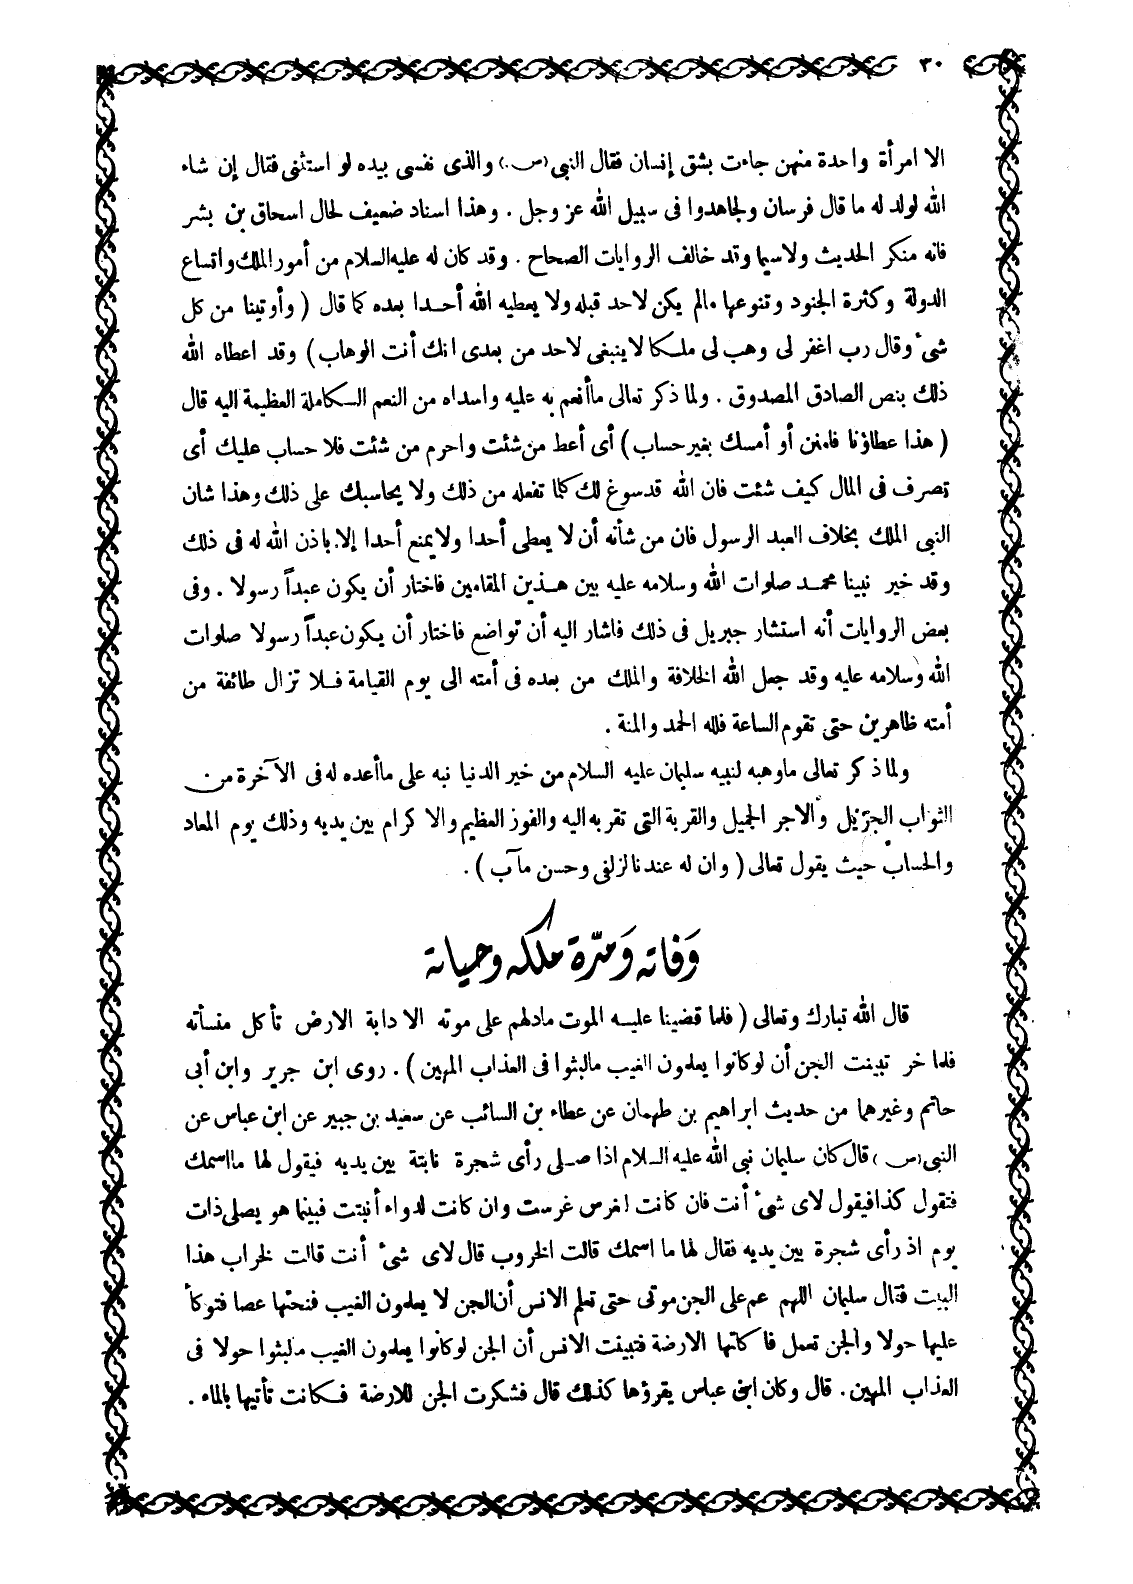 ٣٠
الا امرأة واحدة منهن جاءت بشق إنسان فقال النبي (ص.) والذى نفسى بيده لو استثنى فقال إن شاء
الله لولد له ما قال فرسان ولجاهدوا فى سبيل الله عز وجل . وهذا اسناد ضعيف لحال اسحاق بن بشر
فانه منكر الحديث ولاسيما وقد خالف الروايات الصحاح . وقد كان له عليه السلام من أمور الملك واتساع
الدولة وكثرة الجنود وتنوعها مالم يكن لاحد قبله ولا يعطيه الله أحدا بعده كما قال ( وأوتينا من كل
شىء وقال رب اغفر لى وهب لى ملكا لاينبغى لاحد من بعدى انك أنت الوهاب ) وقد اعطاه الله
ذلك بنص الصادق المصدوق . ولما ذكر تعالى ماأنعم به عليه واسداه من النعم الكاملة العظيمة اليه قال
( هذا عطاؤنا فامنن أو أمسك بغير حساب ) أى أعط من شئت واحرم من شئت فلا حساب عليك أى
تصرف فى المال كيف شئت فان الله قد سوغ لك كلما تفعله من ذلك ولا يحاسبك على ذلك وهذا شان
النبى الملك بخلاف العبد الرسول فان من شأنه أن لا يعطى أحدا ولايمنع أحدا إلا باذن الله له فى ذلك
وقد خير نبينا محمد صلوات الله وسلامه عليه بين هذين المقامين فاختار أن يكون عبداً رسولا . وفى
بعض الروايات أنه استشار جبريل فى ذلك فاشار اليه أن تواضع فاختار أن يكون عبداً رسولا صلوات
الله وسلامه عليه وقد جعل الله الخلافة والملك من بعده فى أمته الى يوم القيامة فلا تزال طائفة من
أمته ظاهرين حتى تقوم الساعة فلله الحمد والمنة .
ولما ذكر تعالى ماوهبه لنبيه سليمان عليه السلام من خير الدنيا نبه على ماأعده له فى الآخرة من
الثواب الجزيل والاجر الجميل والقربة التى تقربه اليه والفوز العظيم والاكرام بين يديه وذلك يوم المعاد
والحساب حيث يقول تعالى ( وان له عندنا لزلفى وحسن مآب ) .
وَفاته وَمدّة ملكه وحياته
قال الله تبارك وتعالى ( فلما قضينا عليه الموت مادلهم على موته الا دابة الارض تأكل منسأته
فلما خر تبينت الجن أن لوكانوا يعلمون الغيب مالبثوا فى العذاب المهين ) . روى ابن جرير وابن أبى
حاتم وغيرهما من حديث ابراهيم بن طهمان عن عطاء بن السائب عن سعيد بن جبير عن ابن عباس عن
النبى (ص) قال كان سليمان نبى الله عليه السلام اذا صلى رأى شجرة نابتة بين يديه فيقول لها مااسمك
فتقول كذا فيقول لاى شىء أنت فان كانت لغرس غرست وان كانت لدواء أنبتت فبينما هو يصلى ذات
يوم اذ رأى شجرة بين يديه فقال لها ما اسمك قالت الخروب قال لاى شىء أنت قالت لخراب هذا
البيت فقال سليمان اللهم عم على الجن موتى حتى تعلم الانس أن الجن لا يعلمون الغيب فنحتها عصا فتوكأ
عليها حولا والجن تعمل فاكلتها الارضة فتبينت الانس أن الجن لوكانوا يعلمون الغيب مالبثوا حولا فى
العذاب المهين . قال وكان ابن عباس يقرؤها كذلك قال فشكرت الجن للارضة فكانت تأتيها بالماء .